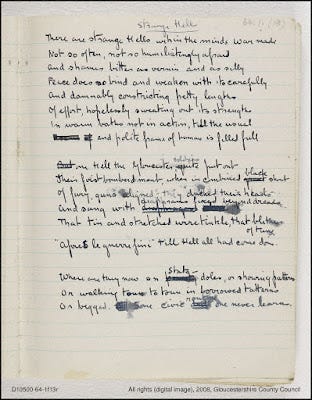 Strange Hell
There are strange Hells within the minds War made
Not so often, not so humiliatingly afraid
and shames bitter as vermin and as
Peace does so bind and weaken with its carefully
and damnably constricting petty lengths
Of effort, hopelessly sweating out its strengths
In warm baths not in action, till the usual
and polite frame of human is filled full
One Hell the Gloucesters quite put out
Their first bombardment, when in combined black shout
of fury, guns aligned, they ducked their heads
And sang with diaphragms fixed beyond dreads
That tin and stretched wire tinkle that blither
of tune
"Après le guerre fini" till Hell all had come down.
Where are they now on State doles, or showing patterns
Or walking town to town in borrowed tatterns
Or begged. Some civic one never learns.
D10500 64-1f13r
All rights (digital image), 2008, Gloucestershire County Council